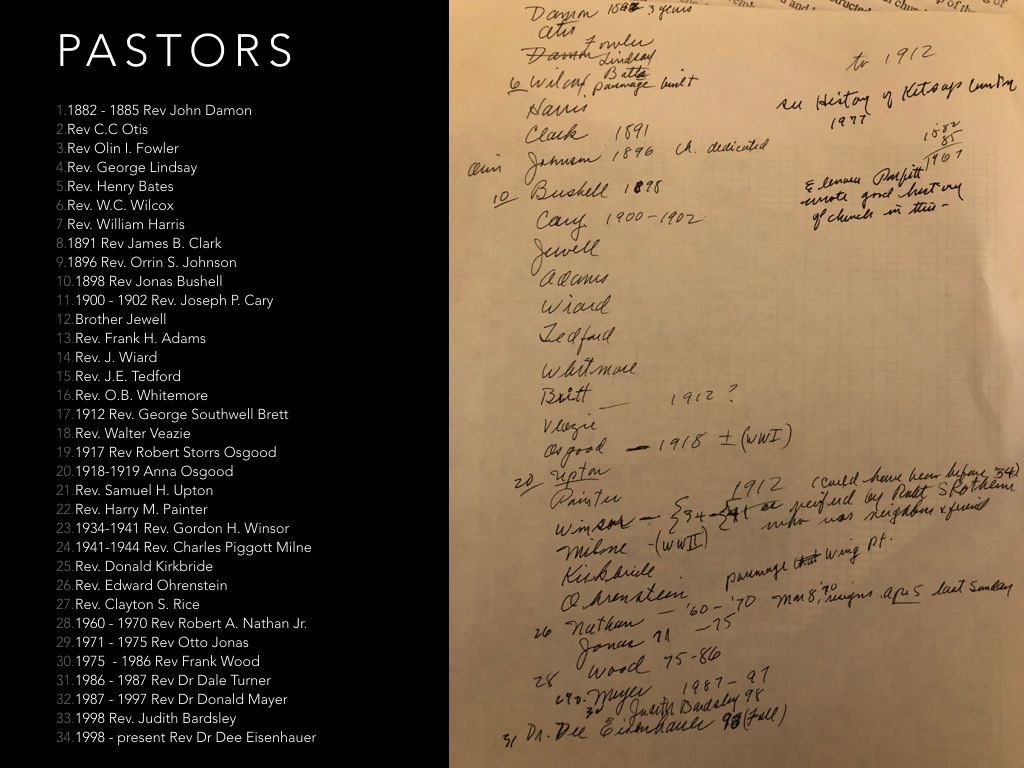 PASTORS
1.1882 - 1885 Rev John Damon
2.Rev C.C Otis
3.Rev Olin I. Fowler
4.Rev. George Lindsay
5.Rev. Henry Bates
6.Rev. W.C. Wilcox
7.Rev. William Harris
8.1891 Rev James B. Clark
9.1896 Rev. Orrin S. Johnson
10.1898 Rev Jonas Bushell
11.1900 - 1902 Rev. Joseph P. Cary
12.Brother Jewell
13.Rev. Frank H. Adams
14.Rev. J. Wiard
15.Rev. J.E. Tedford
16.Rev. O.B. Whitemore
17.1912 Rev. George Southwell Brett
18.Rev. Walter Veazie
19.1917 Rev Robert Storrs Osgood
20.1918-1919 Anna Osgood
21.Rev. Samuel H. Upton
22.Rev. Harry M. Painter
23.1934-1941 Rev. Gordon H. Winsor
24.1941-1944 Rev. Charles Piggott Milne
25.Rev. Donald Kirkbride
26.Rev. Edward Ohrenstein
27.Rev. Clayton S. Rice
28.1960 - 1970 Rev Robert A. Nathan Jr.
29.1971 - 1975 Rev Otto Jonas
30.1975 - 1986 Rev Frank Wood
31.1986 - 1987 Rev Dr Dale Turner
32.1987 - 1997 Rev Dr Donald Mayer
33.1998 Rev. Judith Bardsley
34.1998 - present Rev Dr Dee Eisenhauer
Damon 1882 3 years
Otis
Fowler
Damon Lindsay
Batts
6 Wilcox parsonage built
Harris
Clark 1891
Orrin Johnson 1896 ch. dedicated
10 Bushell 1898
Cary 1900-1902
Jewell
Adams
Wiard
Tedford
Whitmore
Britt — 1912 ?
Veazie
Osgood — 1918 ± (WWI)
20 Upton
Painter 1912 (could have been before '34)
Winsor — {34 - {41 verified by Ralt
who was neighbor & friend
Milne -(WWII)
Kirkbride
Ohrenstein parsonage that Wing Pt.
26 Nathan — '60 - '70 Mar 8, '70 resigns. Apr 5 last Sunday
Jonas 71 -75
28 Wood 75-86
Mayer 1987-97
30 Judith Bardsley 98
31 Dr. Dee Eisenhauer 98 (Fall)
to 1912
see History of Kitsap County
1977
1882
85
1967
Elenora
wrote good history
of church in this -